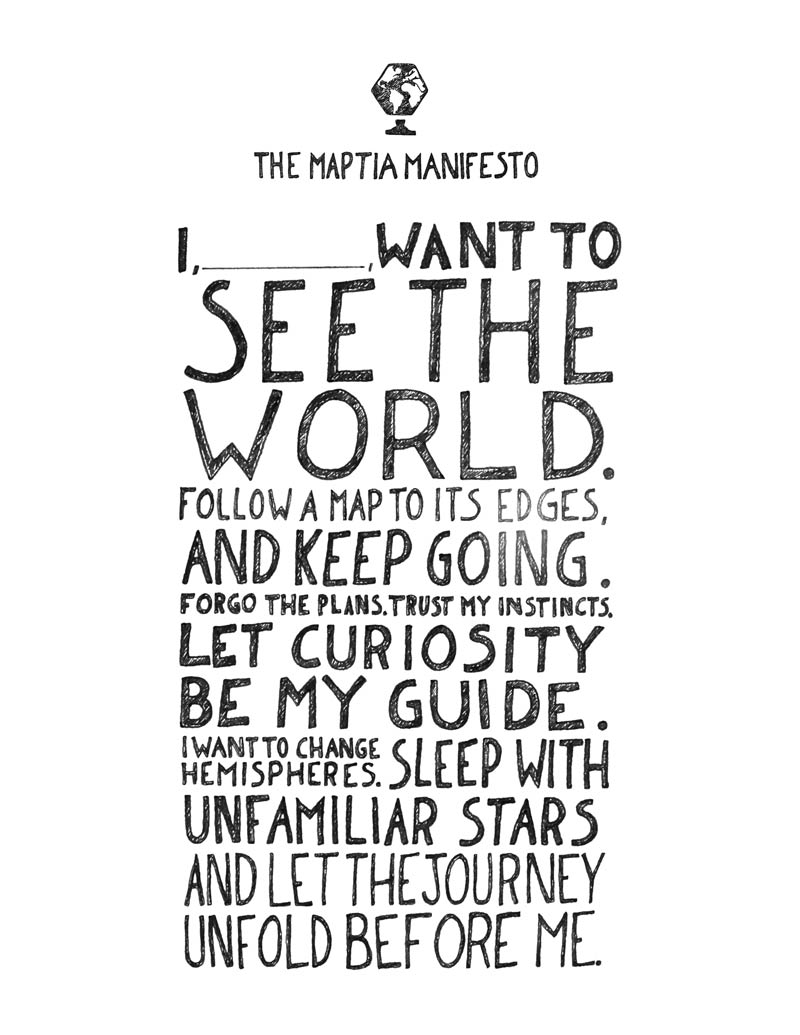 THE MAPTIA MANIFESTO
I,____________, WANT TO
SEE THE
WORLD.
FOLLOW A MAP TO ITS EDGES,
AND KEEP GOING.
FORGO THE PLANS. TRUST MY INSTINCTS.
LET CURIOSITY
BE MY GUIDE.
I WANT TO CHANGE
HEMISPHERES.
SLEEP WITH
UNFAMILIAR STARS
AND LET THE JOURNEY
UNFOLD BEFORE ME.